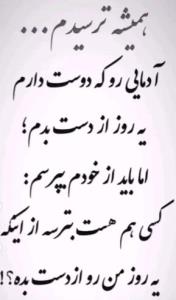 همیشه ترسیدم...
آدمایی رو که دوست دارم
یه روز از دست بدم؛
اما باید از خودم بپرسم:
کسی هم هست بترسه از اینکه
یه روز من رو از دست بده؟!